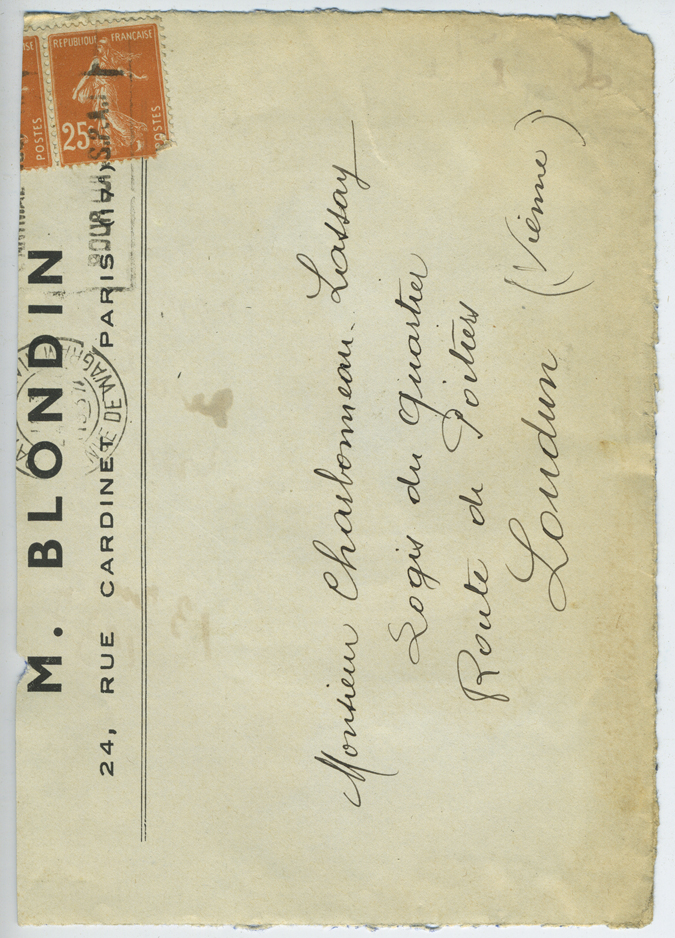 M. BLONDIN
24, RUE CARDINET PARIS (17)
RÉPUBLIQUE FRANÇAISE
25
POSTES
POSTES
DE WAGRAM
Monsieur Charbonneau-Lassay
Logis du Quartier
Route de Poitiers
Loudun (Vienne)